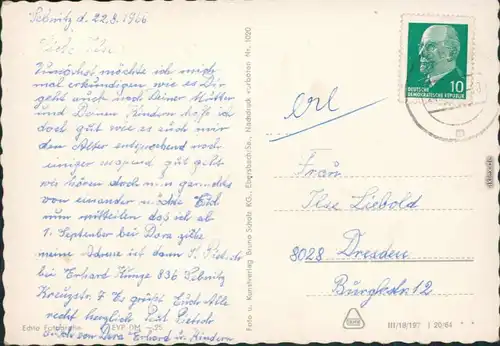 Sebnitz d. 22.8.1966
Liebe Ilse
Zunächst möchte ich mich
mal erkundigen wie es Dir
geht auch noch Deiner Mutter
und Deinen Kindern hoffe ich
doch gut wie es auch mir
dem Alter entsprechend noch
einiger gut geht
wir hören doch nun garnichts
von einander möchte Euch
nun mitteilen das ich ab
1. September bei Dora
meine Adresse ist dann
bei Erhard Runge 836 Sebnitz
Kreuzstr. 7 Es grüßt Euch Alle
recht herzlich
von Dora Erhard u. Kindern
Echte Fotografie
EVP DM -,25
Foto u. Kunstverlag Bruno Scholz KG., Ebersbach/Sa., Nachdruck verboten Nr. 1020
DEUTSCHE
DEMOKRATISCHE REPUBLIK
10
Frau
Ilse Liebold
8028 Dresden
Burgkstr. 12
III/18/197 I 20/64